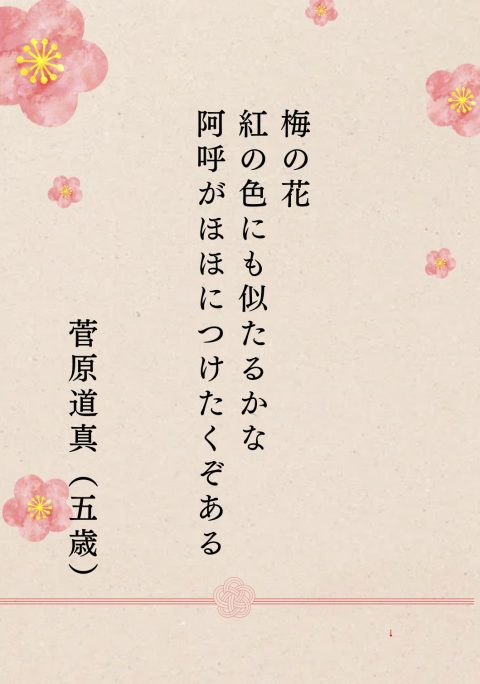 梅の花
紅の色にも似たるかな
阿呼がほほにつけたくぞある
菅原道真（五歳）
↓